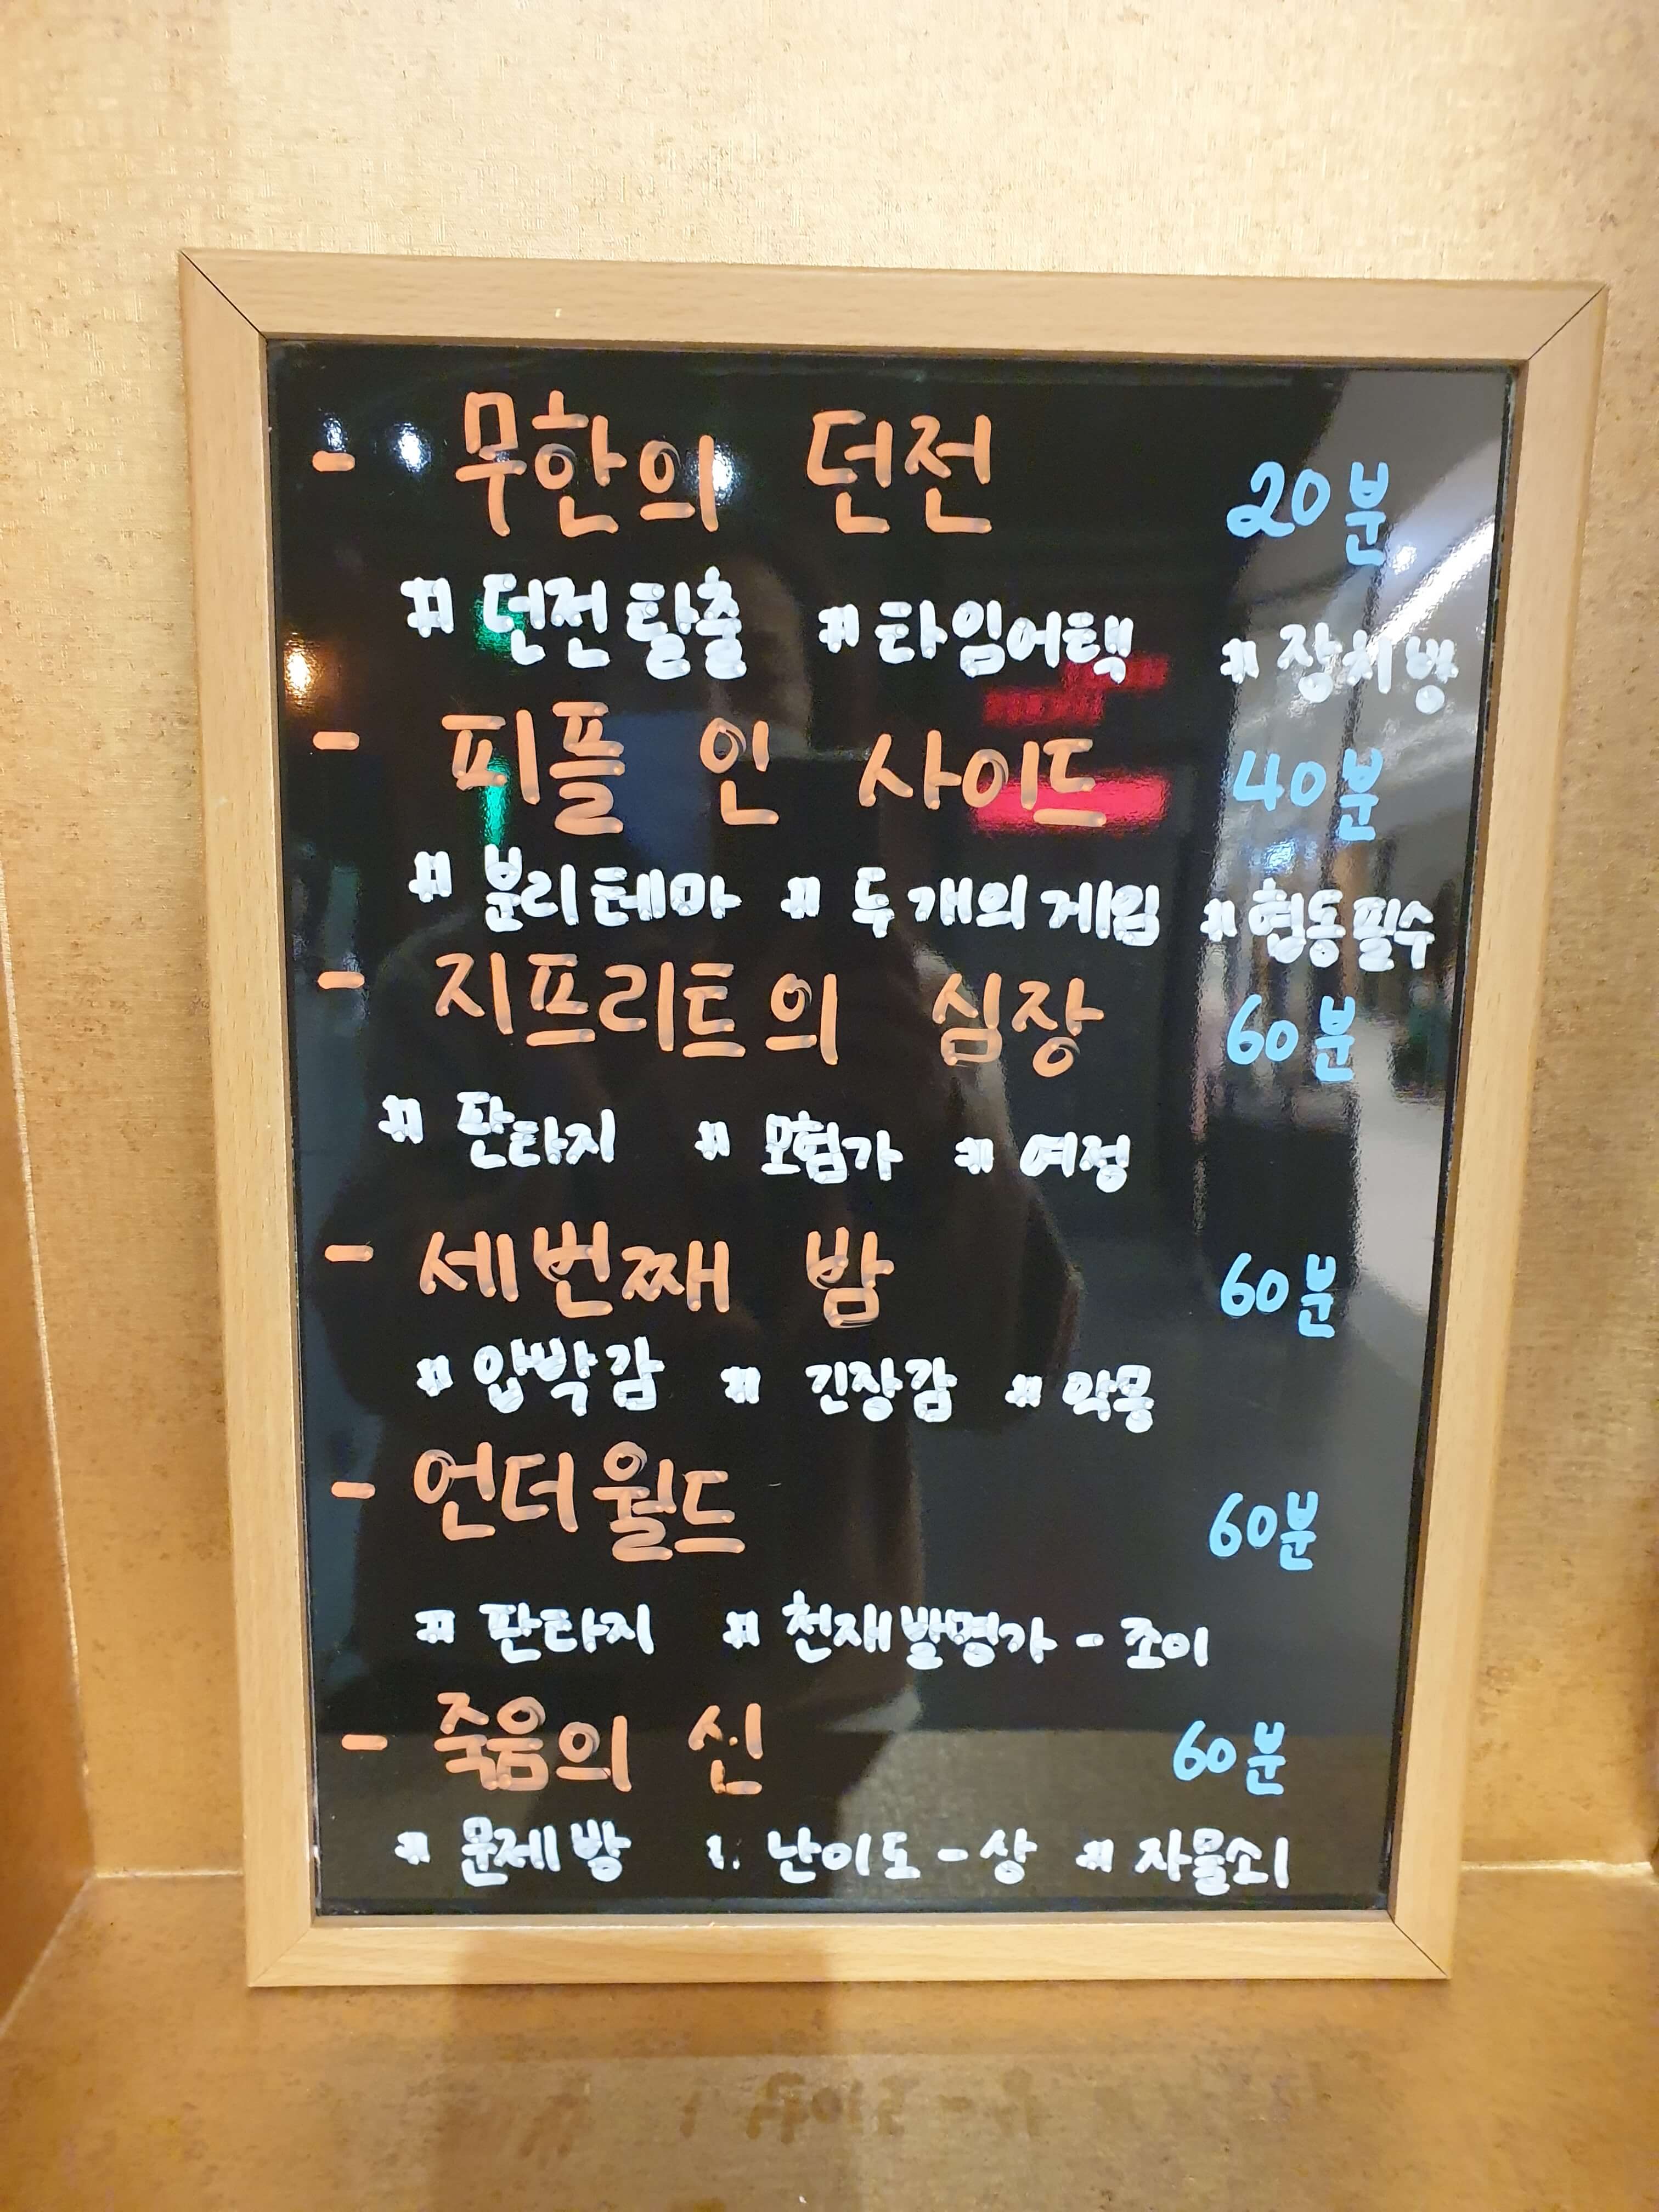 - 무한의 던전 20분
#던전탈출 #타임어택 #장치방
- 피플 인 사이드 40분
#분리테마 #두개의게임 #협동필수
- 지프리트의 심장 60분
#판타지 #모험가 #여정
- 세번째 밤 60분
#압박감 #긴장감 #악몽
- 언더월드 60분
#판타지 #천재발명가-조이
- 죽음의 신 60분
#문제방 난이도-상 #자물쇠